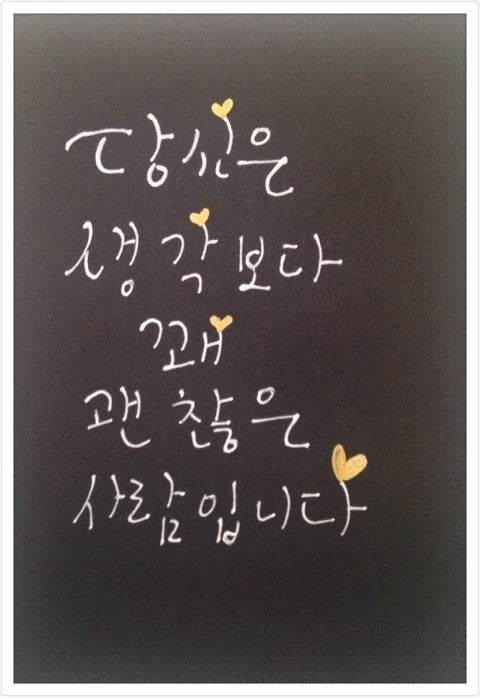 당신은
생각보다
꽤
괜찮은
사람입니다